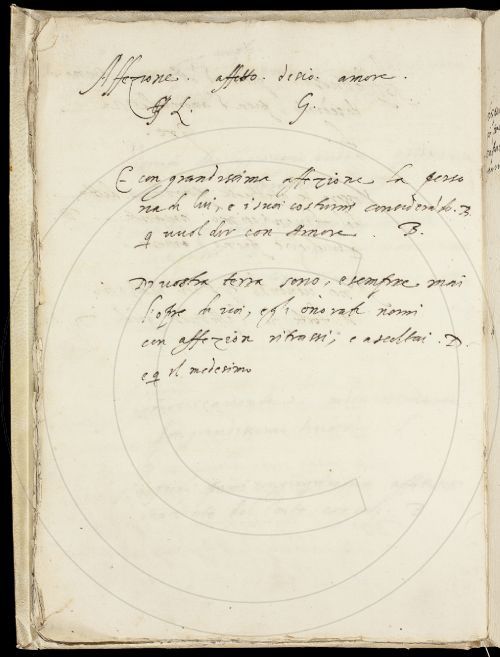 Affezione. affetto. desio. amore.
L. G.
E con grandissima affezione la perso
na di lui, e i suoi costumi considerado. B.
q vuol dir con Amore. B.
Di vostra terra sono, e sempre mai
l'opre di voi, e gli onorati nomi
con affezion ritrassi, e ascoltai D.
e q il medesimo